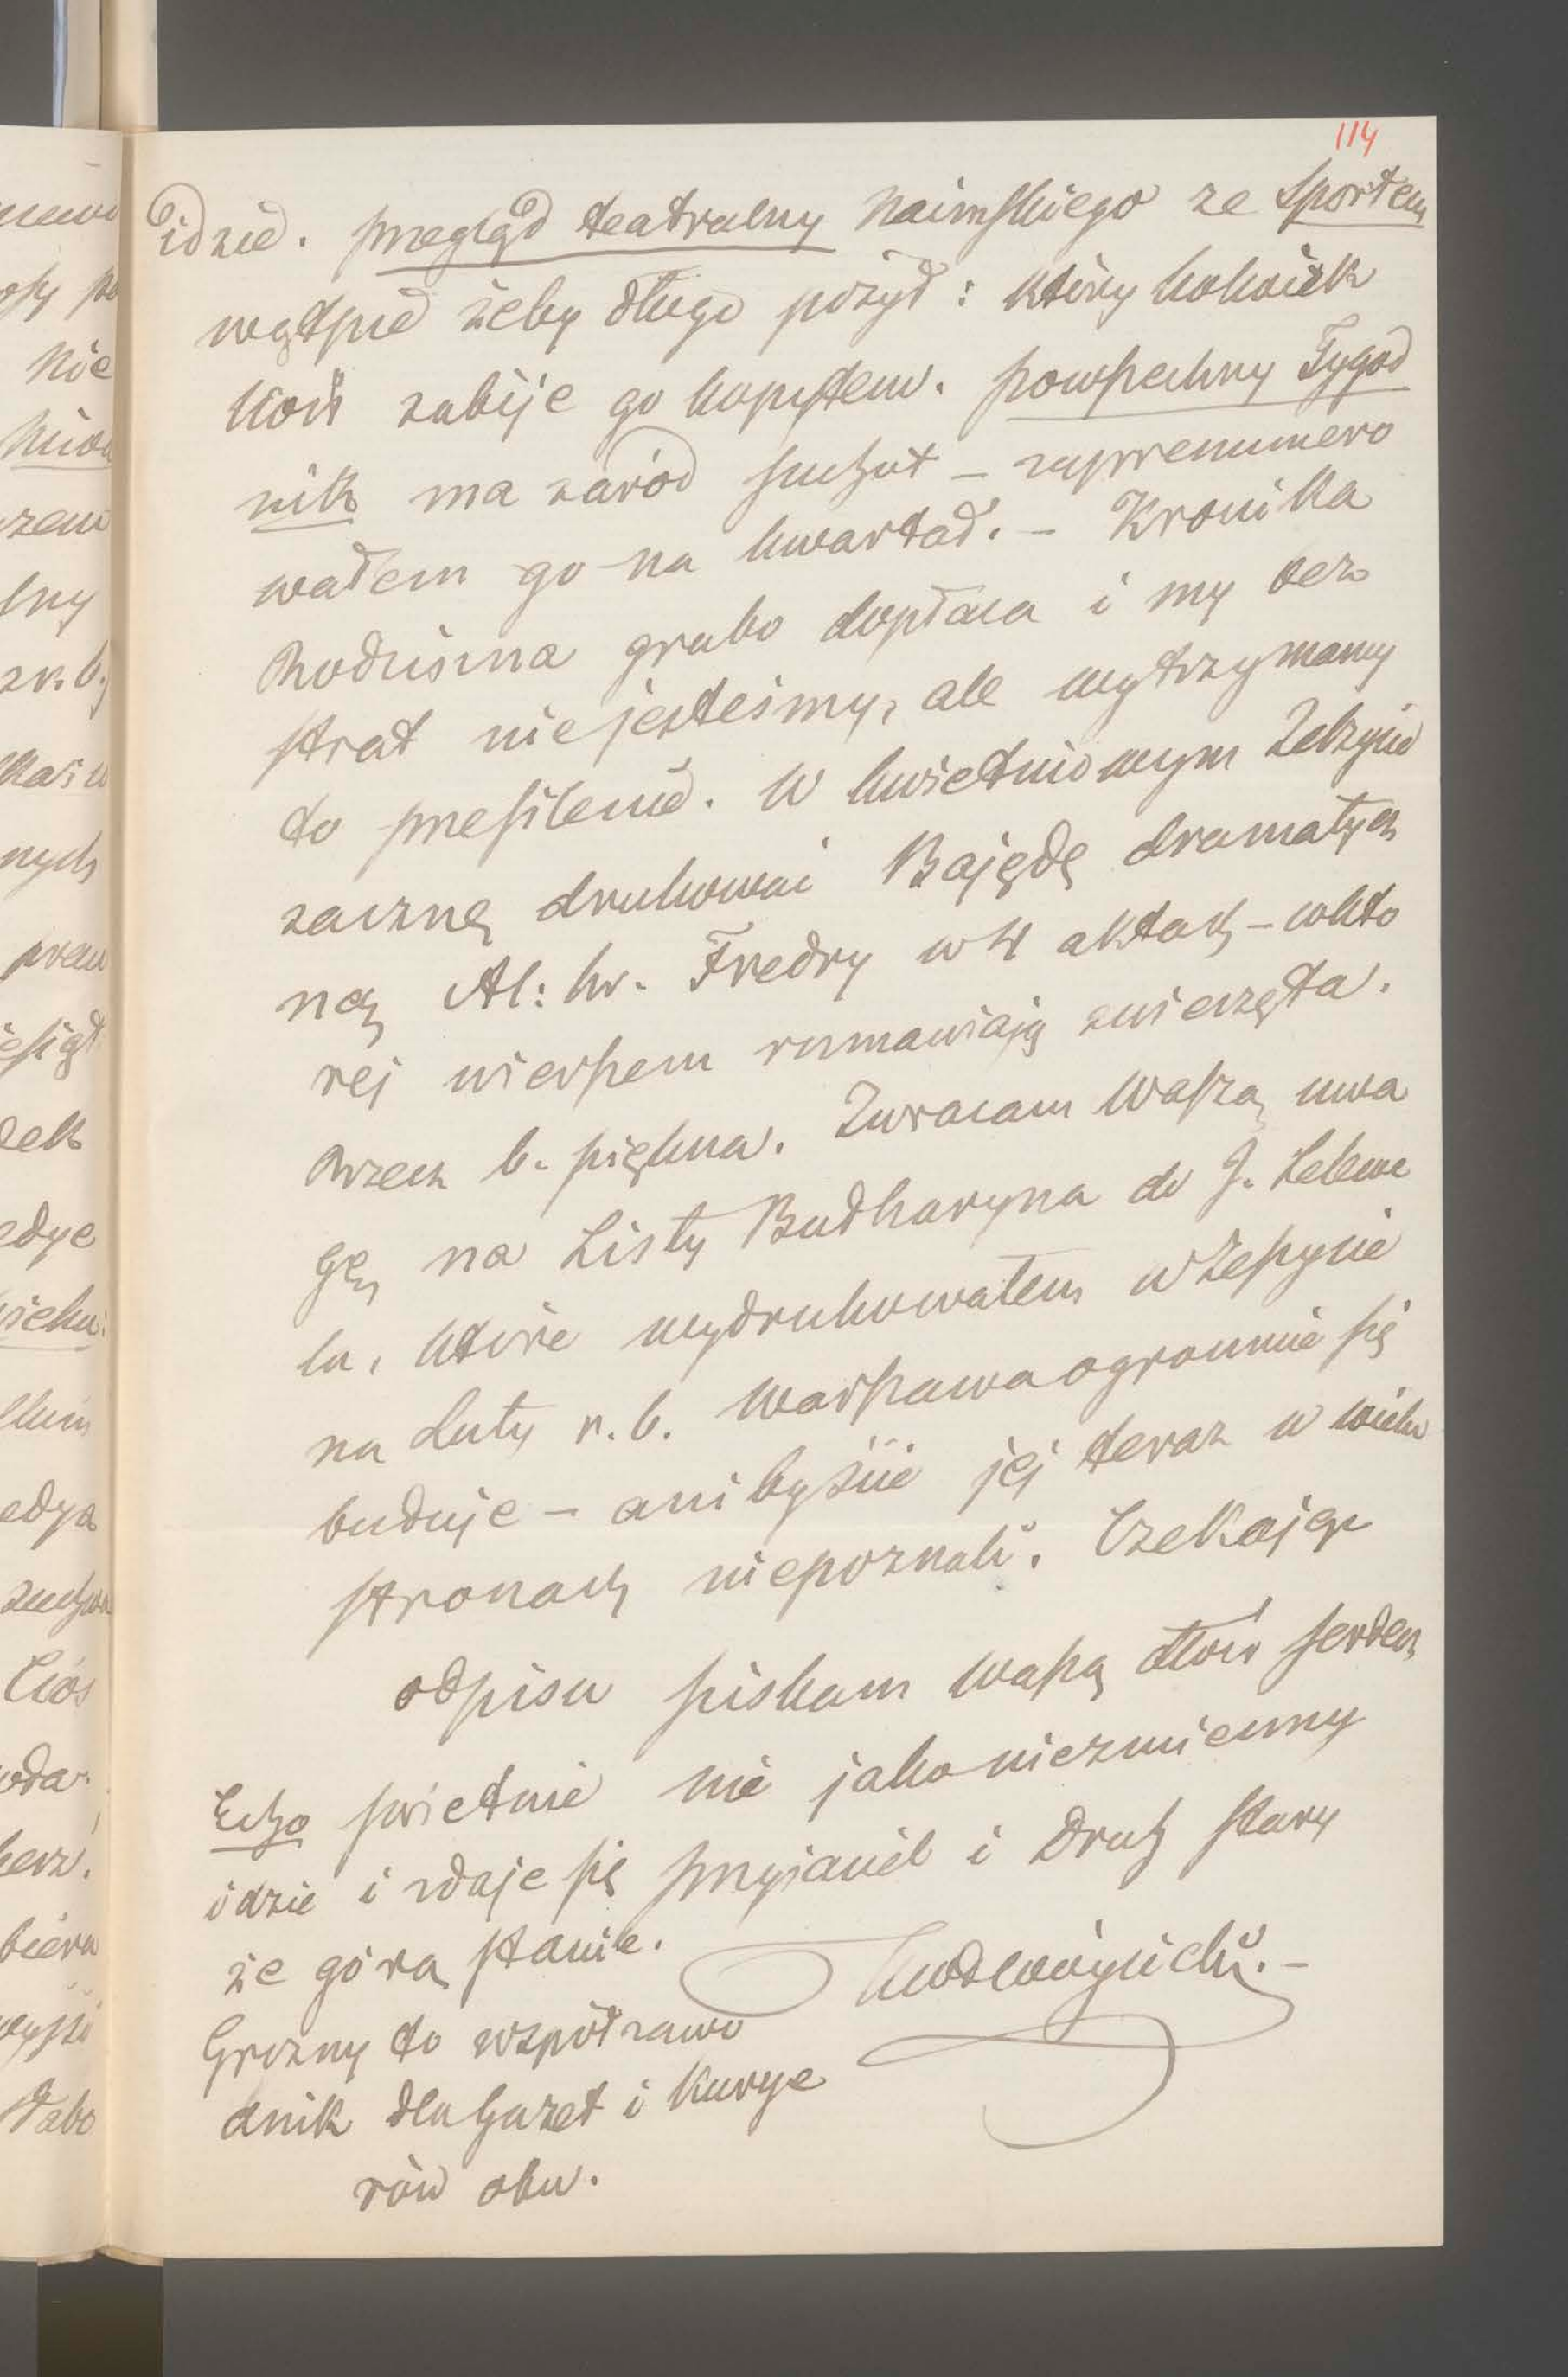 114
idzie. Przegląd teatralny Naimskiego ze Sportem
wątpię żeby długo pożył: który kolwiek
koń zabije go kopytem. Powszechny Tygod
nik ma zaród suchot – zaprenumero
wałem go na kwartał. – Kronika
Rodzinna grubo dopłaca i my bez
strat nie jesteśmy, ale wytrzymamy
to przesilenie. W kwietniowym Zeszycie
zacznę drukować Bajędę dramatycz
ną Al: hr. Fredry w 4 aktach – w któ
rej wierszem rozmawiają zwierzęta.
Rzecz b. piękna. Zwracam Waszą uwa
gę, na Listy Bułharyna do J. Lelewe
la, które wydrukowałem w Zeszycie
na Luty r. b. Warszawa ogromnie się
buduje – ani byście jej teraz w wielu
stronach nie poznali. Czekając
odpisu ściskam Waszą dłoń serdecz
nie jako niezmienny
przyjaciel i Druh stary
KWł Wójcicki. –
Echo świetnie
idzie i zdaje się
że górą stanie.
Groźny to współzawo
dnik dla Gazet i Kurye
rów obu.
nie
lny
nych
edye
edya